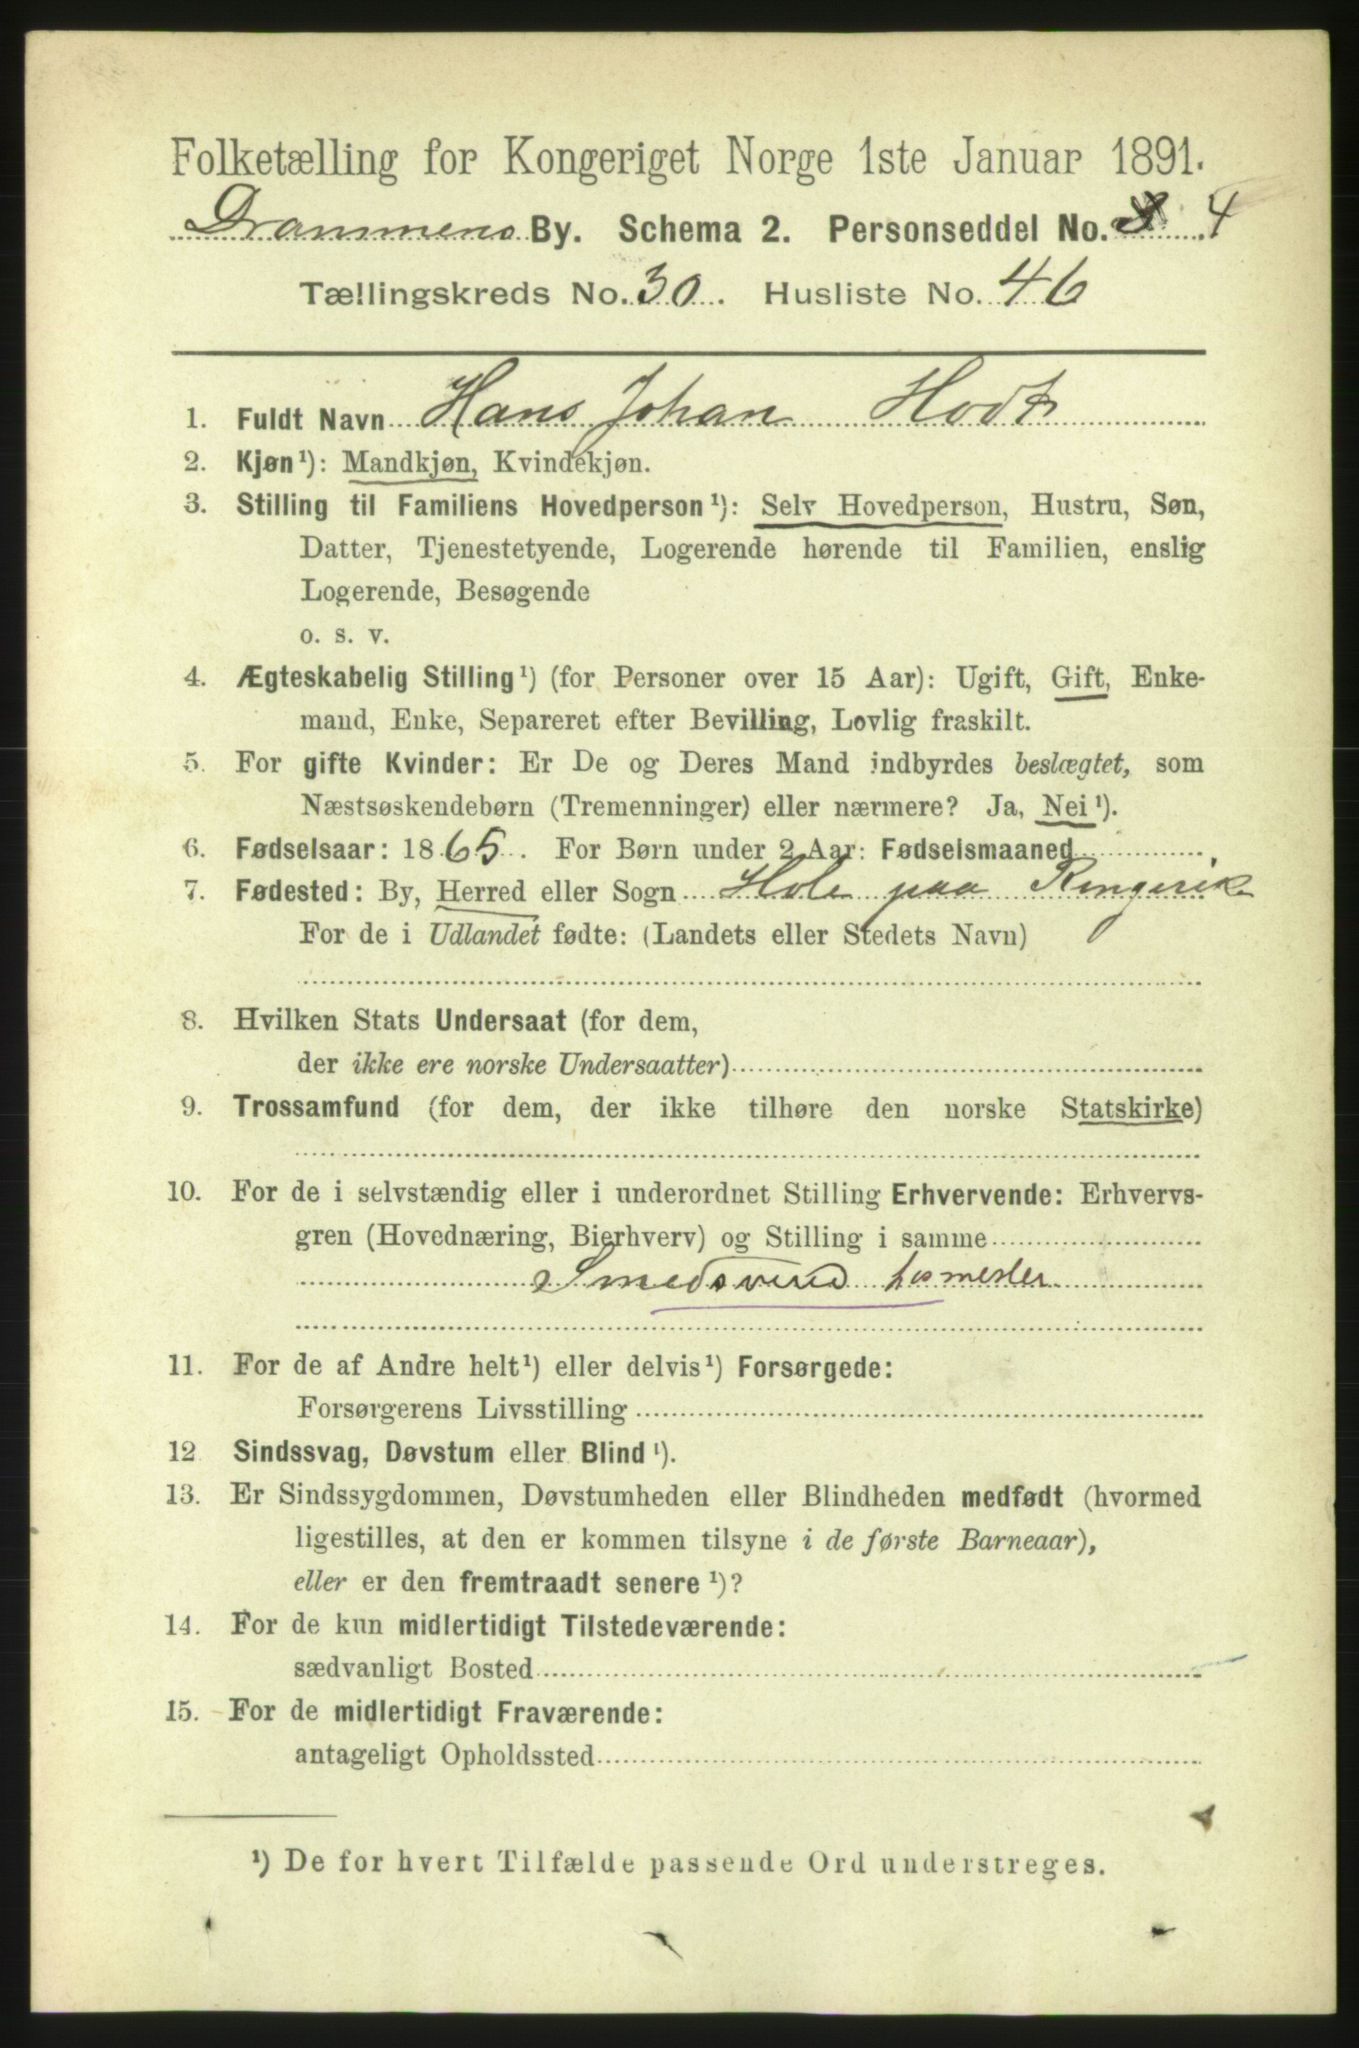 Folketælling for Kongeriget Norge 1ste Januar 1891.
Drammens By. Schema 2. Personseddel No. 4
Tællingskreds No. 30. Husliste No. 46
1. Fuldt Navn Hans Johan Hodt
2. Kjøn¹): Mandkjøn, Kvindekjøn.
3. Stilling til Familiens Hovedperson¹): Selv Hovedperson, Hustru, Søn,
Datter, Tjenestetyende, Logerende hørende til Familien, enslig
Logerende, Besøgende
o. s. v.
4. Ægteskabelig Stilling¹) (for Personer over 15 Aar): Ugift, Gift, Enke-
mand, Enke, Separeret efter Bevilling, Lovlig fraskilt.
5. For gifte Kvinder: Er De og Deres Mand indbyrdes beslægtet, som
Næstsøskendebørn (Tremenninger) eller nærmere? Ja, Nei¹).
6. Fødselsaar: 1865. For Børn under 2 Aar: Fødselsmaaned
7. Fødested: By, Herred eller Sogn Hole paa Ringerike
For de i Udlandet fødte: (Landets eller Stedets Navn)
8. Hvilken Stats Undersaat (for dem,
der ikke ere norske Undersaatter)
9. Trossamfund (for dem, der ikke tilhøre den norske Statskirke)
10. For de i selvstændig eller i underordnet Stilling Erhvervende: Erhvervs-
gren (Hovednæring, Bierhverv) og Stilling i samme
Smedsvend
11. For de af Andre helt¹) eller delvis¹) Forsørgede:
Forsørgerens Livsstilling
12 Sindssvag, Døvstum eller Blind¹).
13. Er Sindssygdommen, Døvstumheden eller Blindheden medfødt (hvormed
ligestilles, at den er kommen tilsyne i de første Barneaar),
eller er den fremtraadt senere¹)?
14. For de kun midlertidigt Tilstedeværende:
sædvanligt Bosted
15. For de midlertidigt Fraværende:
antageligt Opholdssted
¹) De for hvert Tilfælde passende Ord understreges.